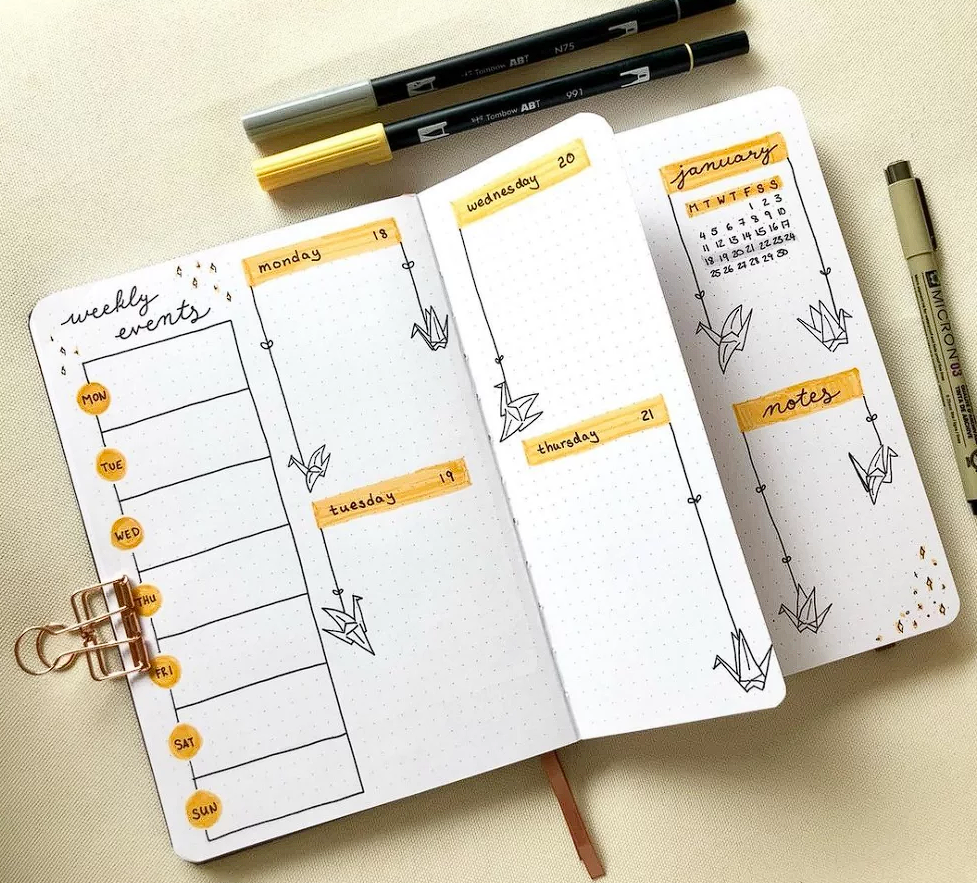 N75
Tombow ABT
991
Tombow ABT
weekly
events
MON
TUE
WED
THU
FRI
SAT
SUN
monday 18
tuesday 19
wednesday 20
thursday 21
january
M T W T F S S
1 2 3
4 5 6 7 8 9 10
11 12 13 14 15 16 17
18 19 20 21 22 23 24
25 26 27 28 29 30
notes
MICRON 03